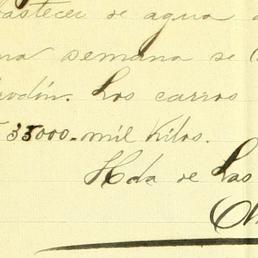 bastecer de agua a
na semana se
rodón. Los carros
35000-mil Kilos.
Hda de Las